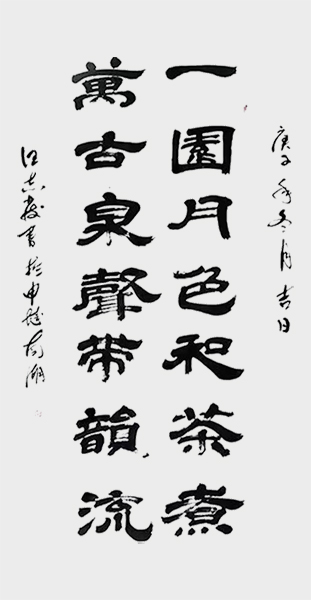 庚子年冬月吉日
一園月色和茶煮
萬古泉聲带韻流
江志發書於申南湖